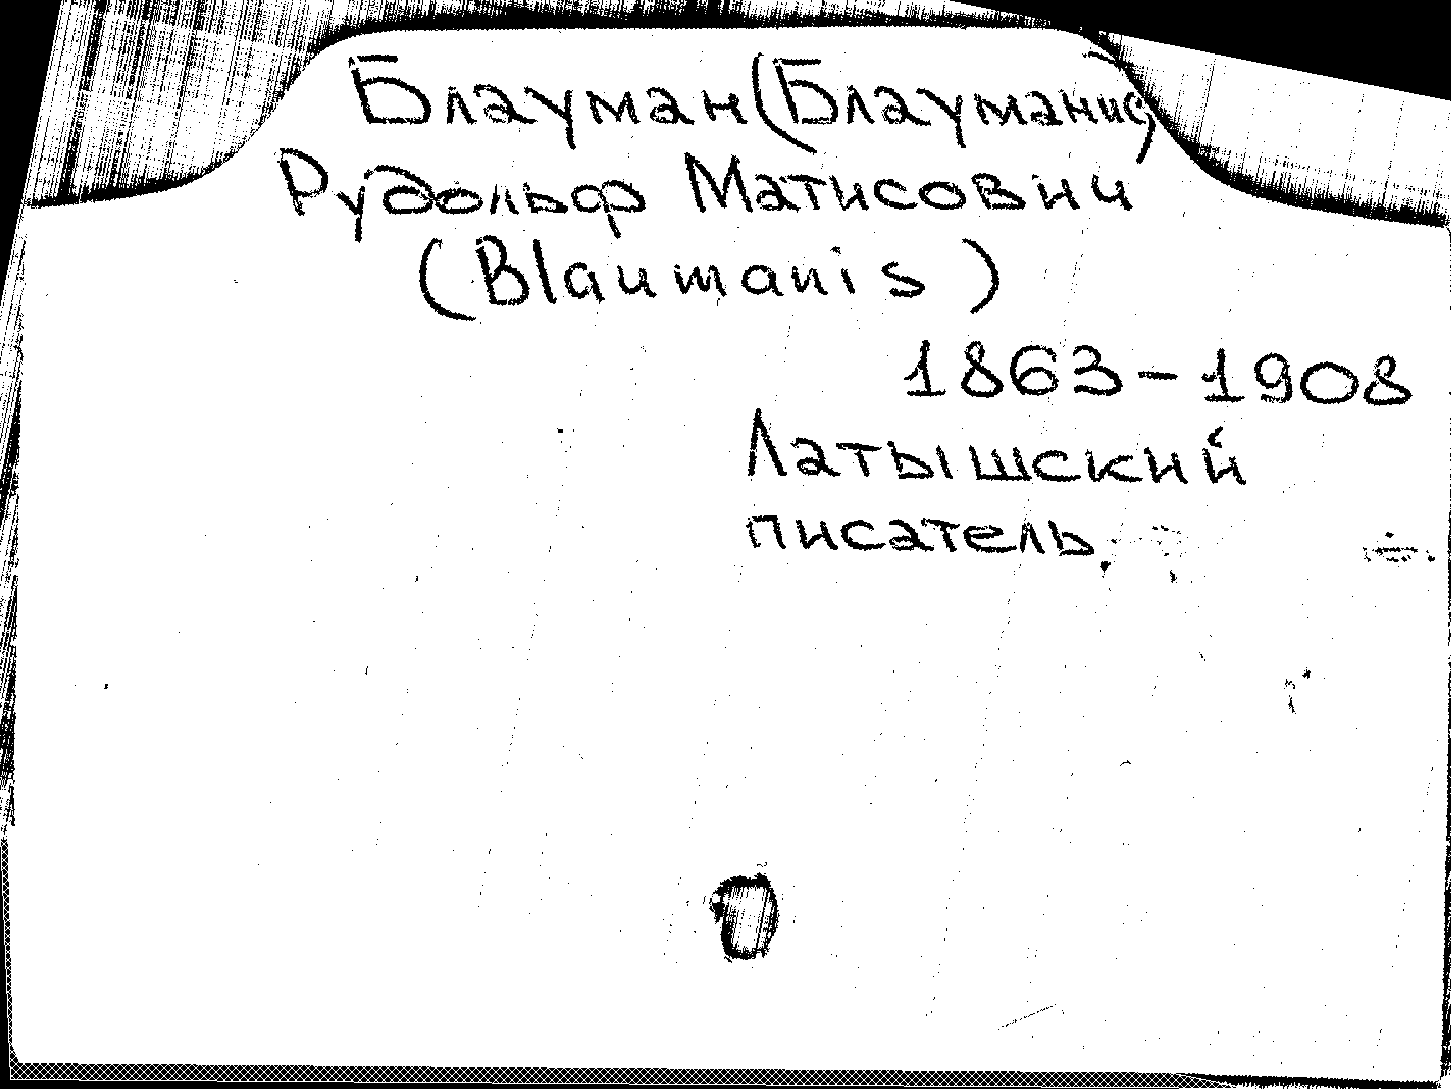 Блауман (Блауманис)
Рудольф Матисович
(Blaumanis)
1863-1908
Латышский
писатель